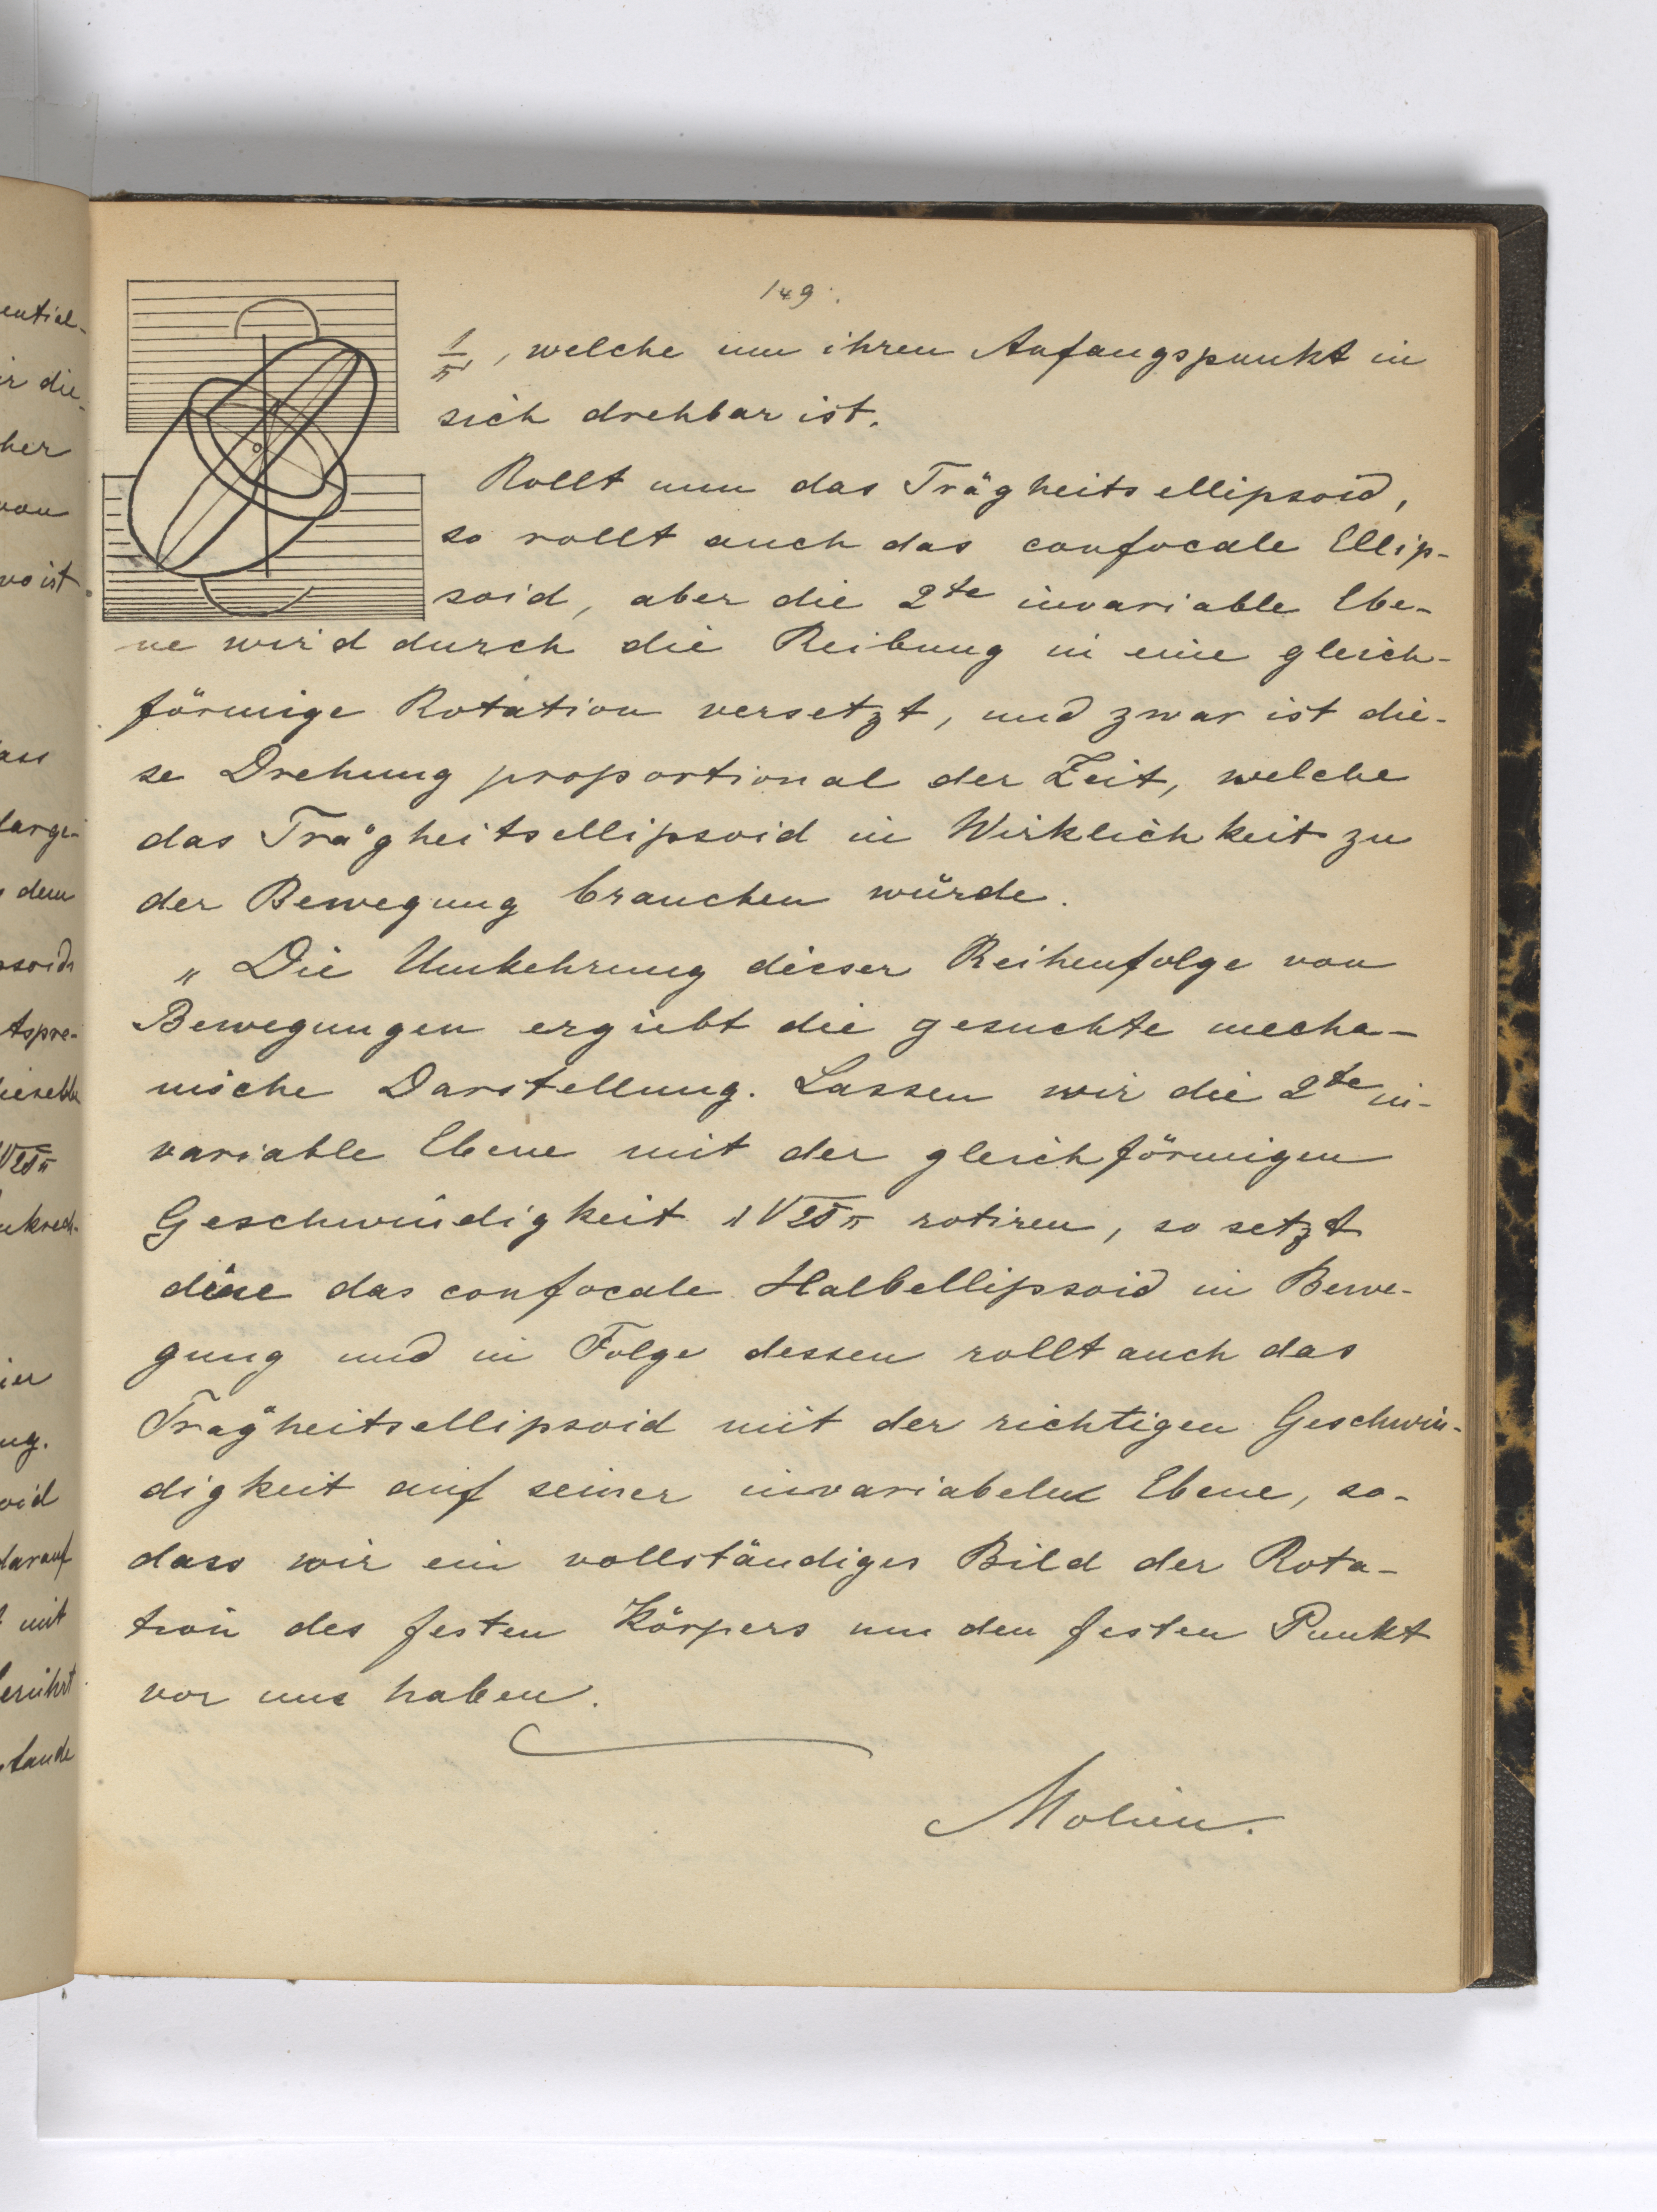 149.
1/π, welche um ihren Anfangspunkt in
sich drehbar ist.
Rollt nun das Trägheitsellipsoid,
so rollt auch das confocale Ellip-
soid, aber die 2te invariable Ebe-
ne wird durch die Reibung in eine gleich-
förmige Rotation versetzt, und zwar ist die-
se Drehung proportional der Zeit, welche
das Trägheitsellipsoid in Wirklichkeit zu
der Bewegung brauchen würde.
„Die Umkehrung dieser Reihenfolge von
Bewegungen ergiebt die gesuchte mecha-
nische Darstellung. Lassen wir die 2te in-
variable Ebene mit der gleichförmigen
Geschwindigkeit rotiren, so setzt
diese das confocale Halbellipsoid in Bewe-
gung und in Folge dessen rollt auch das
Trägheitsellipsoid mit der richtigen Geschwin-
digkeit auf seiner invariabelen Ebene, so-
dass wir ein vollständiges Bild der Rota-
tion des festen Körpers um den festen Punkt
vor uns haben.
Molien.
ential-
ir die-
her
von
wo ist
dem
ier
darauf
mit
berührt